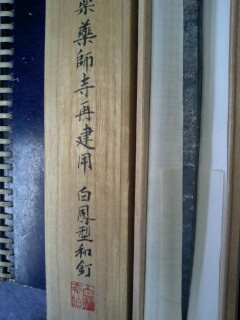 薬師寺再建用 白鳳型和釘